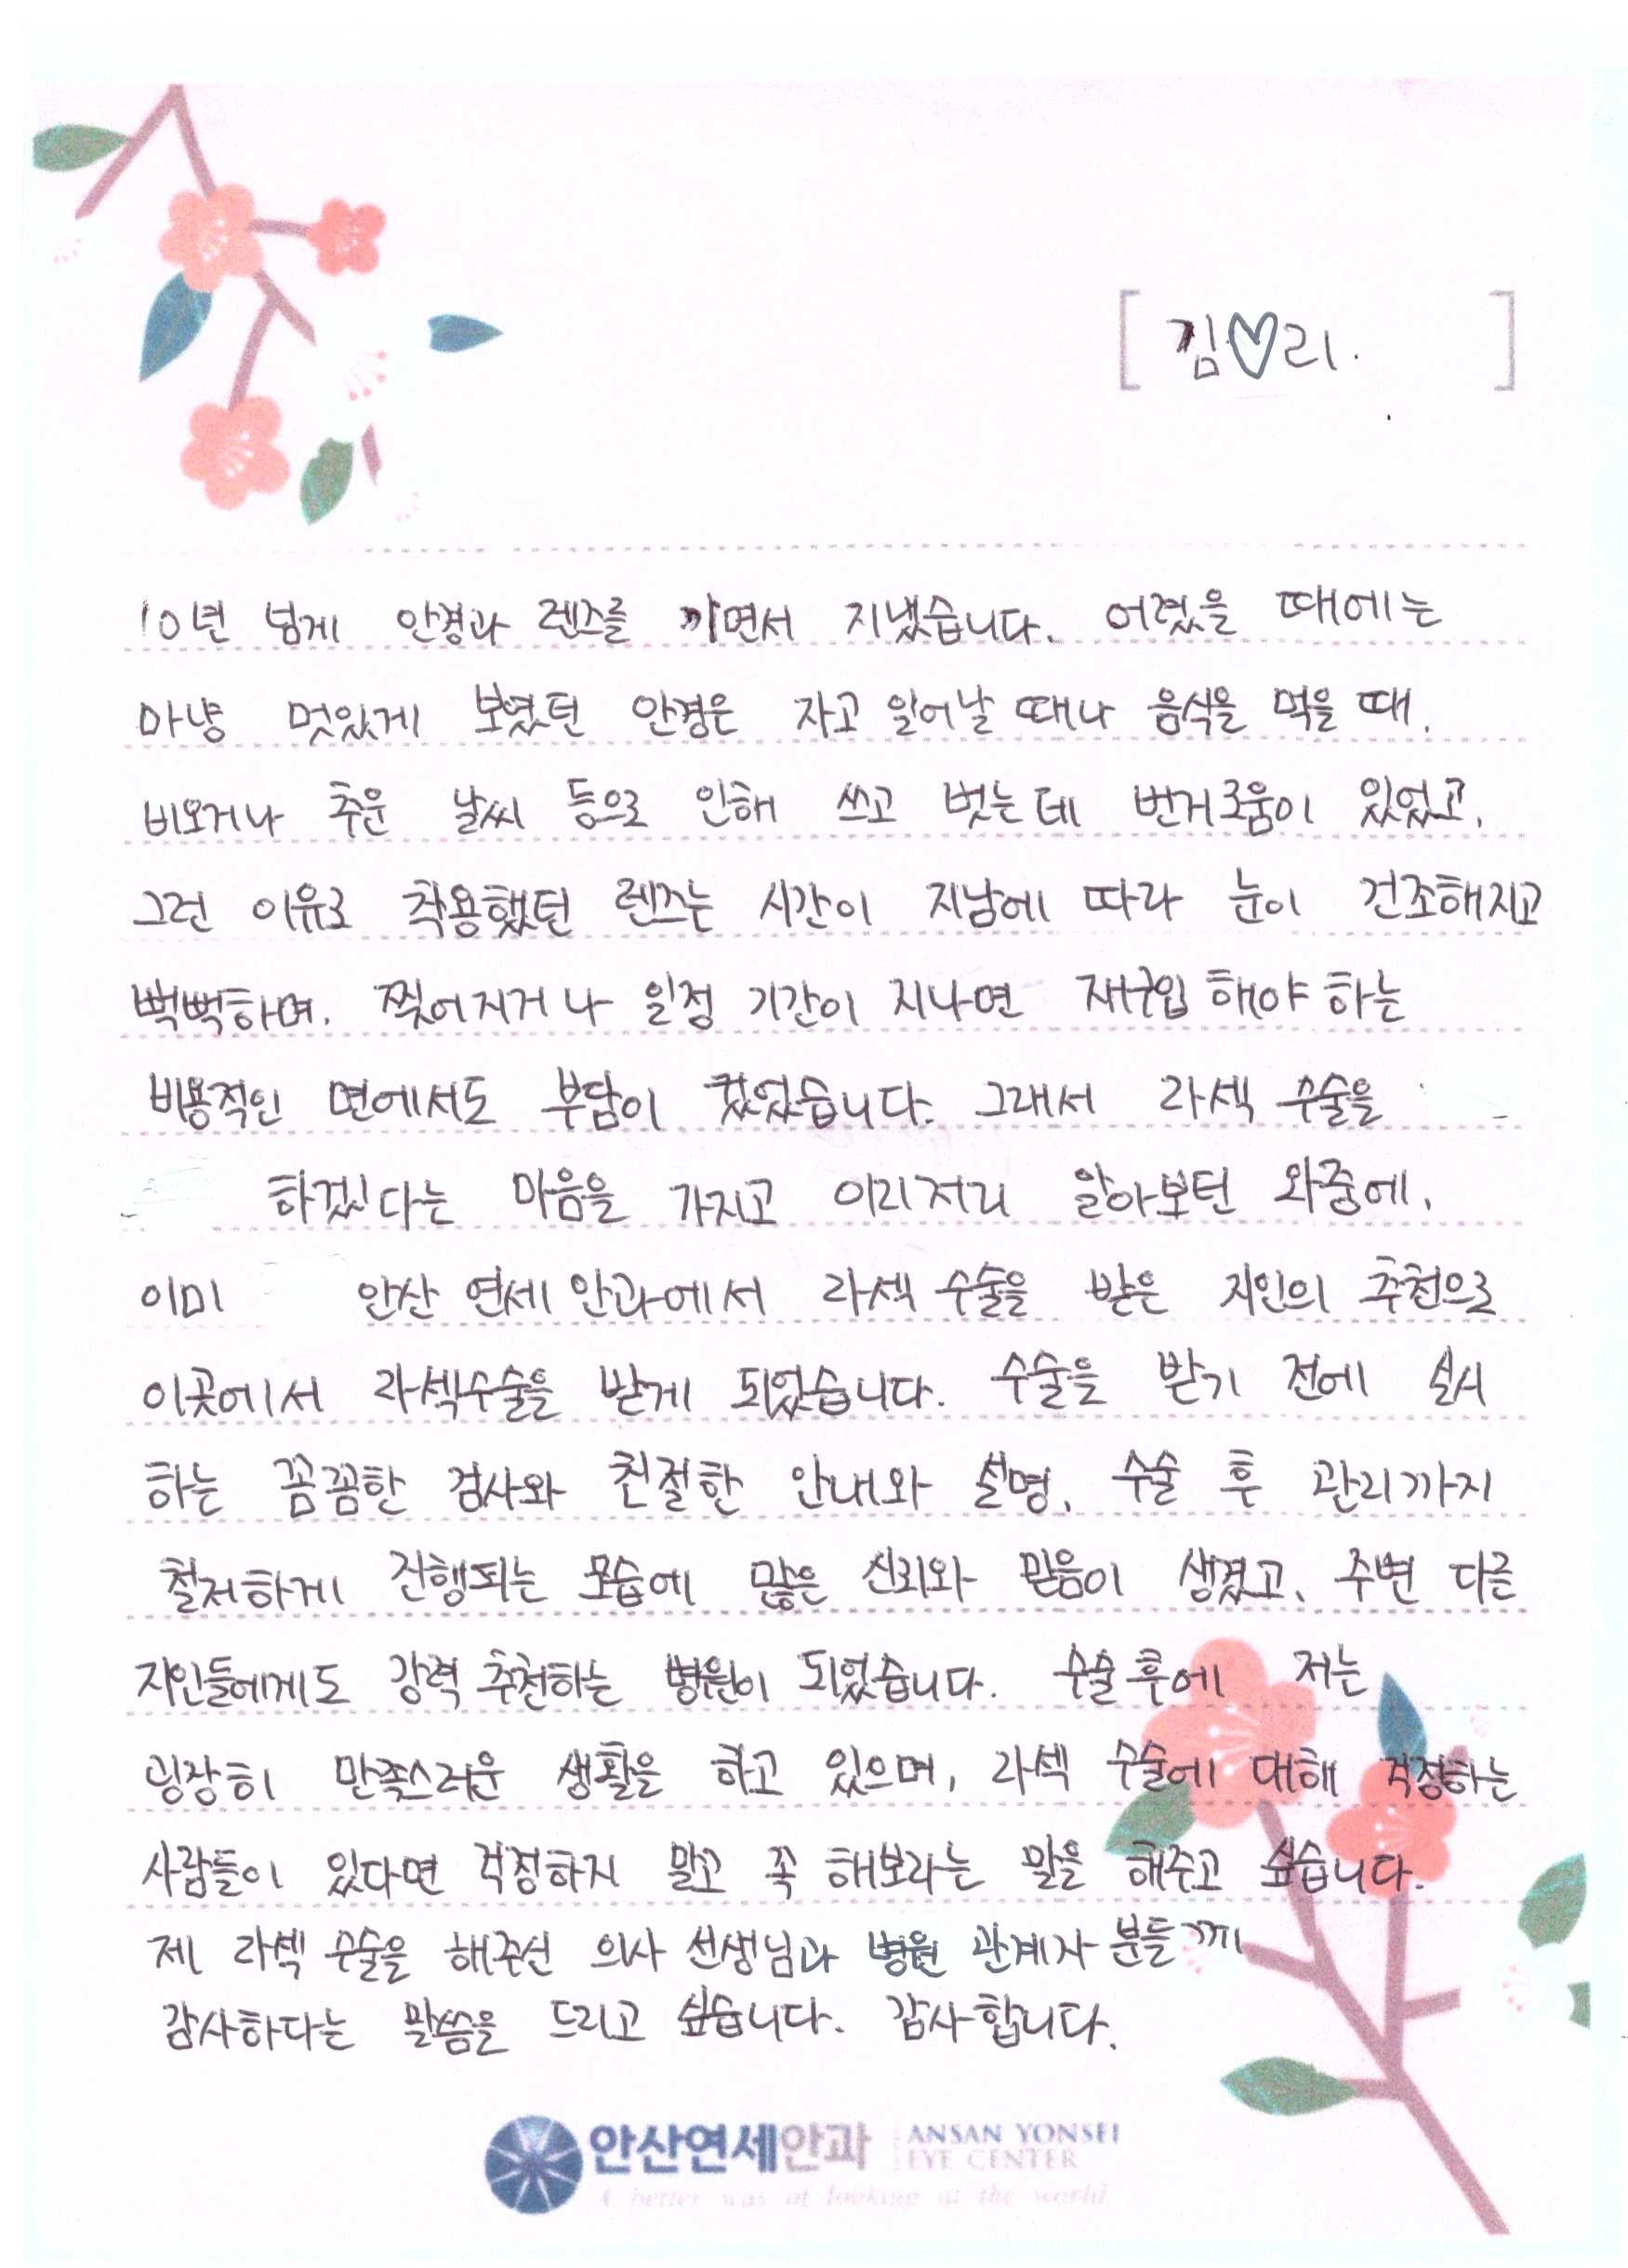 [ 김♡리. ]
10년 넘게 안경과 렌즈를 끼면서 지냈습니다. 어렸을 때에는
마냥 멋있게 보였던 안경은 자고 일어날 때나 음식을 먹을 때,
비오거나 추운 날씨 등으로 인해 쓰고 벗는데 번거로움이 있었고,
그런 이유로 착용했던 렌즈는 시간이 지남에 따라 눈이 건조해지고
뻑뻑하며, 찢어지거나 일정 기간이 지나면 재구입해야 하는
비용적인 면에서도 부담이 컸었습니다. 그래서 라섹 수술을
하겠다는 마음을 가지고 이리저리 알아보던 와중에,
이미 안산 연세 안과에서 라섹 수술을 받은 지인의 추천으로
이곳에서 라섹수술을 받게 되었습니다. 수술을 받기 전에 실시
하는 꼼꼼한 검사와 친절한 안내와 설명, 수술 후 관리까지
철저하게 진행되는 모습에 많은 신뢰와 믿음이 생겼고, 주변 다른
지인들에게도 강력 추천하는 병원이 되었습니다. 수술 후에 저는
굉장히 만족스러운 생활을 하고 있으며, 라섹 수술에 대해 걱정하는
사람들이 있다면 걱정하지 말고 꼭 해보라는 말을 해주고 싶습니다.
제 라섹 수술을 해주신 의사 선생님과 병원 관계자 분들께
감사하다는 말씀을 드리고 싶습니다. 감사합니다.
안산연세안과 ANSAN YONSEI
EYE CENTER
A better way of looking at the world